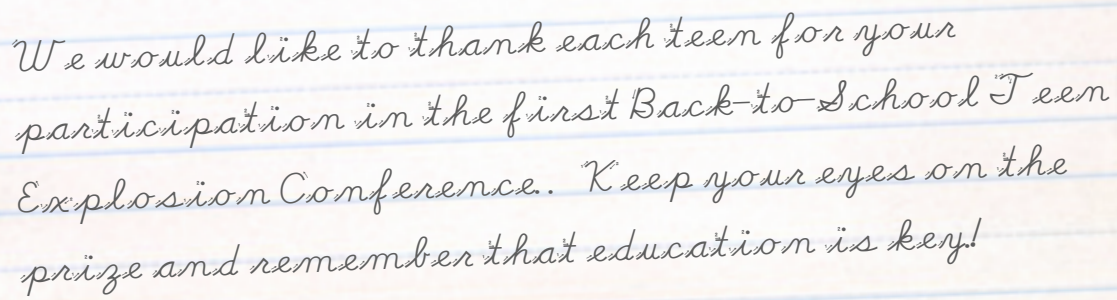 We would like to thank each teen for your
participation in the first Back-to-School Teen
Explosion Conference.. Keep your eyes on the
prize and remember that education is key!